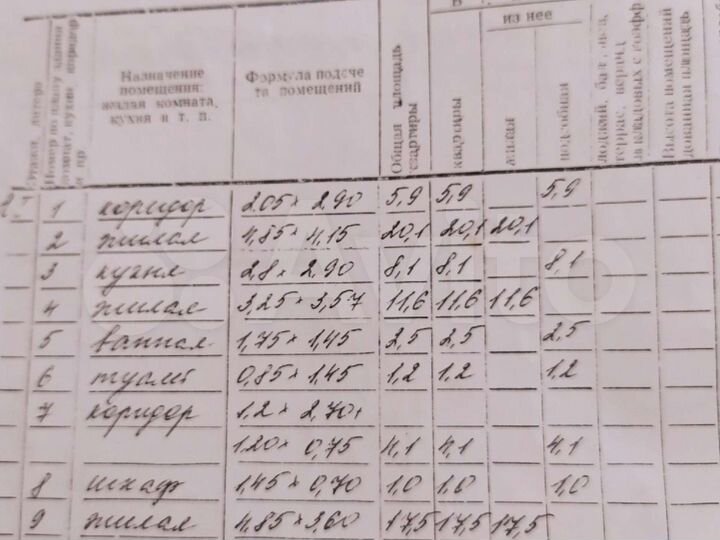 из нее
Этажи, литера
Номер по плану здания
комнат, кухни, коридор
и пр.
Назначение
помещения:
жилая комната,
кухня и т. п.
Формула подсче
та помещений
Общая площадь
квартиры
квартиры
жилая
подсобная
лоджий, балконов,
террас, веранд
и кладовых с коэфф
Высота помещений
дованная площадь
1 коридор 2.05 × 2.90 5,9 5,9 5,9
2 жилая 4,85 × 4,15 20,1 20,1 20,1
3 кухня 2,8 × 2.90 8,1 8,1 8,1
4 жилая 3,25 × 3,57 11,6 11,6 11,6
5 ванная 1,75 × 1,45 2,5 2,5 2,5
6 туалет 0,85 × 1,45 1,2 1,2 1,2
7 коридор 1.2 × 2,70+
1.20 × 0,75 4,1 4,1 4,1
8 шкаф 1,45 × 0,70 1,0 1,0 1,0
9 жилая 4,85 × 3,60 17,5 17,5 17,5
Avito